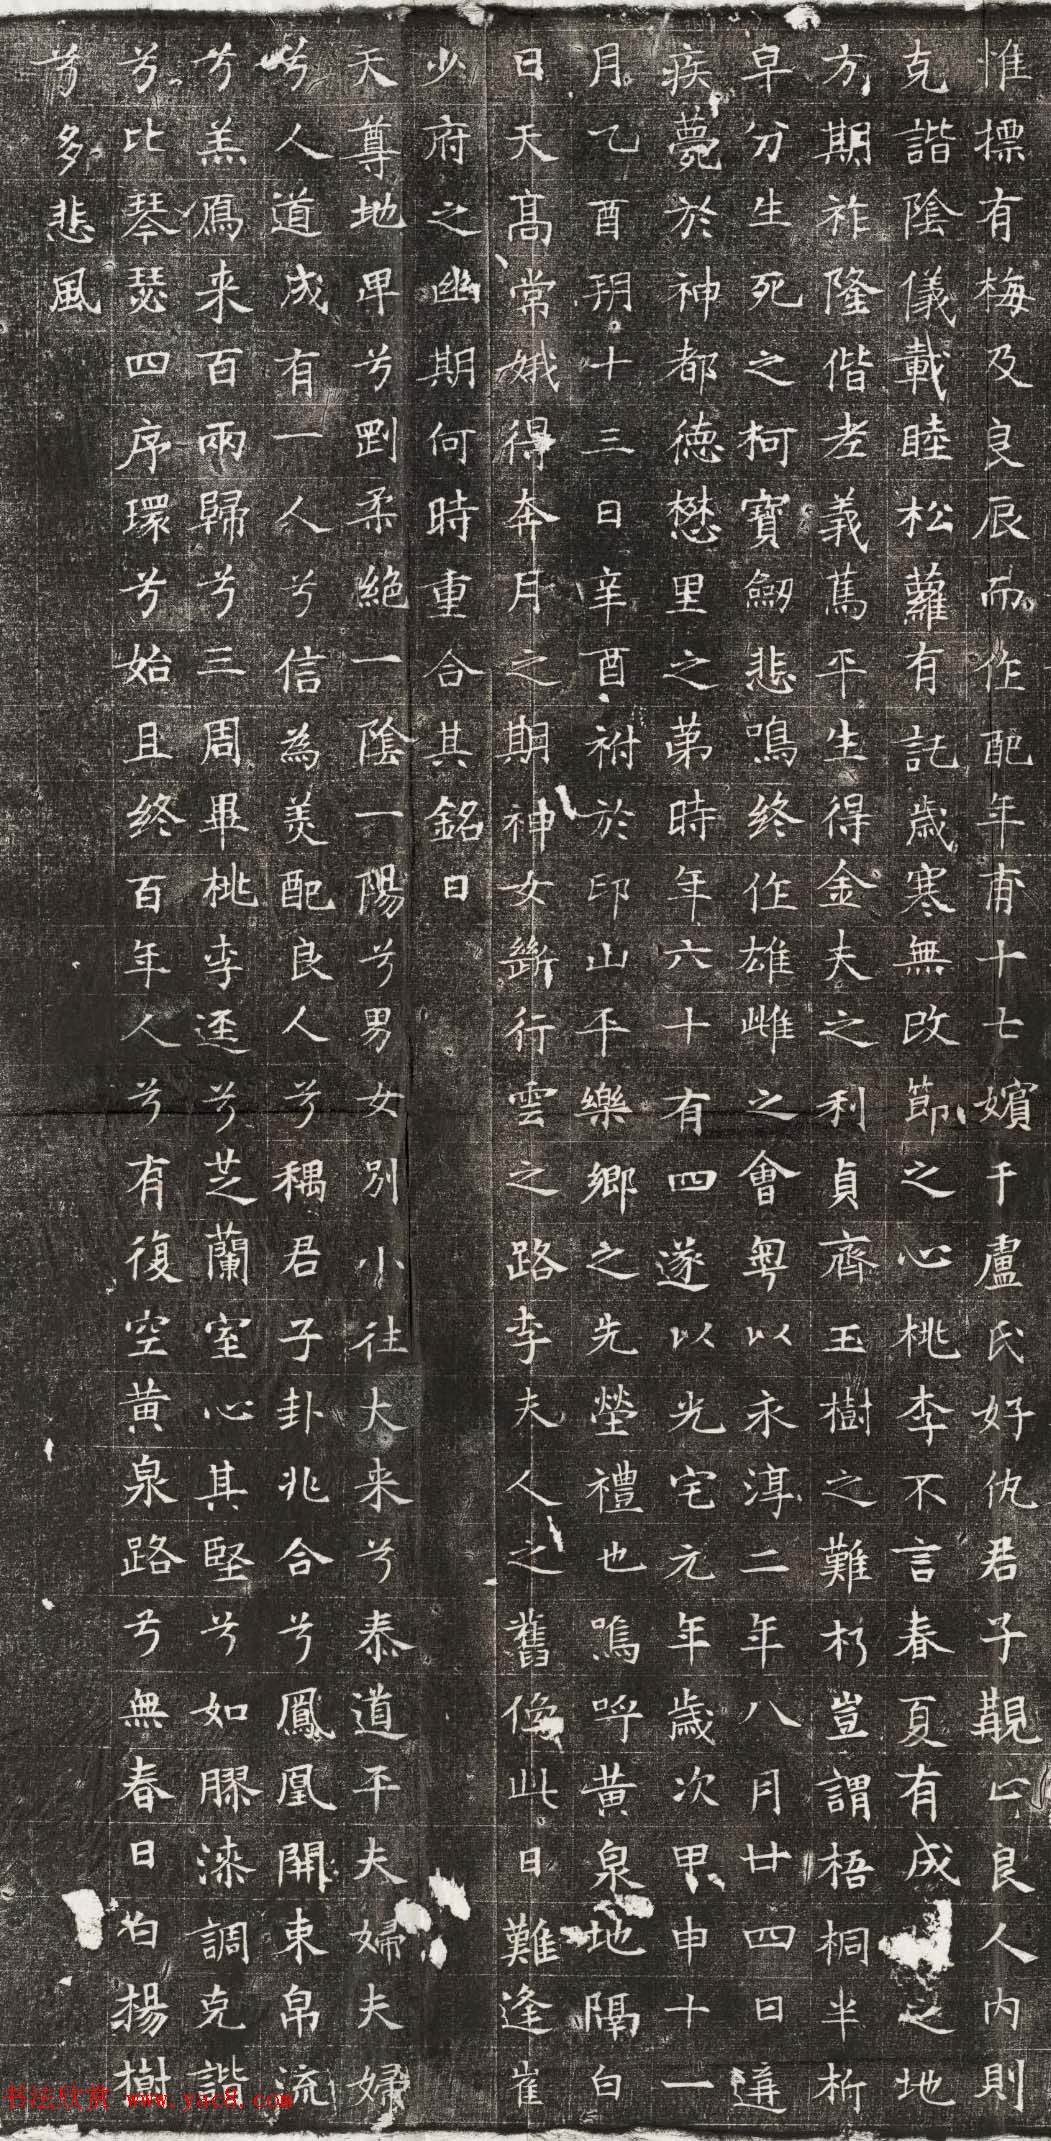 惟摽有梅及良辰而作配年甫十七嬪于盧氏好仇君子覯止良人內則
克諧陰儀載睦松蘿有託歲寒無改節之心桃李不言春夏有成之地
方期祚隆偕老義篤平生得金夫之利貞齊玉樹之難朽豈謂梧桐半析
早分生死之柯寶劒悲鳴終作雄雌之會粵以永淳二年八月廿四日遘
疾薨於神都德懋里之苐時年六十有四遂以光宅元年歲次甲申十一
月乙酉玥十三日辛酉祔於印山平樂鄉之先塋禮也嗚呼黃泉地隔白
日天高常娥得奔月之期神女斷行雲之路李夫人之舊像此日難逢崔
少府之幽期何時重合其銘曰
天尊地卑兮剛柔絕一陰一陽兮男女別小往大来兮泰道平夫婦夫婦
兮人道成有一人兮信為美配良人兮稱君子卦兆合兮鳳凰開束帛流
兮羔鴈来百兩歸兮三周畢桃李逕兮芝蘭室心其堅兮如膠漆調克諧
兮比琴瑟四序環兮始且終百年人兮有復空黃泉路兮無春日白楊樹
兮多悲風
书法欣赏 www.yac8.com